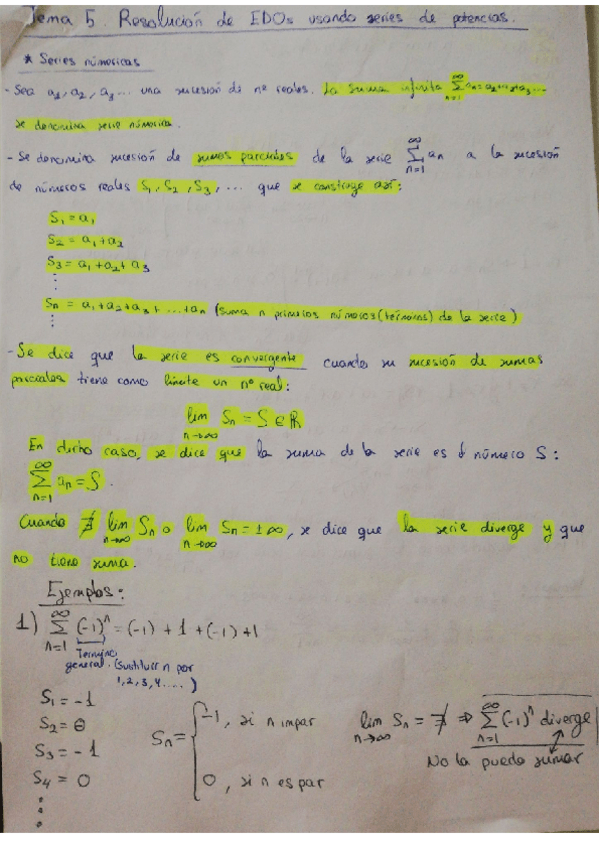 Tema 5. Resolución de EDOs usando series de potencias.
* Series númericas
- Sea a₁, a₂, a₃... una sucesión de nº reales. La suma infinita ∑_{n=1}^{∞} aₙ = a₁+a₂+a₃...
se denomina serie númerica.
- Se denomina sucesión de sumas parciales de la serie ∑_{n=1}^{∞} aₙ a la sucesión
de números reales S₁, S₂, S₃, ... que se construye así:
S₁ = a₁
S₂ = a₁+a₂
S₃ = a₁+a₂+a₃
⋮
Sₙ = a₁+a₂+a₃+...+aₙ (suma n primeros números (términos) de la serie)
- Se dice que la serie es convergente cuando su sucesión de sumas
parciales tiene como límite un nº real:
lim_{n→∞} Sₙ = S ∈ ℝ
En dicho caso, se dice que la suma de la serie es el número S:
∑_{n=1}^{∞} aₙ = S.
Cuando ∄ lim_{n→∞} Sₙ o lim_{n→∞} Sₙ = ±∞, se dice que la serie diverge y que
no tiene suma.
Ejemplos:
1) ∑_{n=1}^{∞} (-1)ⁿ = (-1) + 1 + (-1) + 1
Término
general. (sustituir n por
1,2,3,4....)
S₁ = -1
S₂ = 0
S₃ = -1
S₄ = 0
⋮
Sₙ = { -1, si n impar
0, si n es par
lim_{n→∞} Sₙ = ∄ ⇒ ∑_{n=1}^{∞} (-1)ⁿ diverge
No la puedo sumar